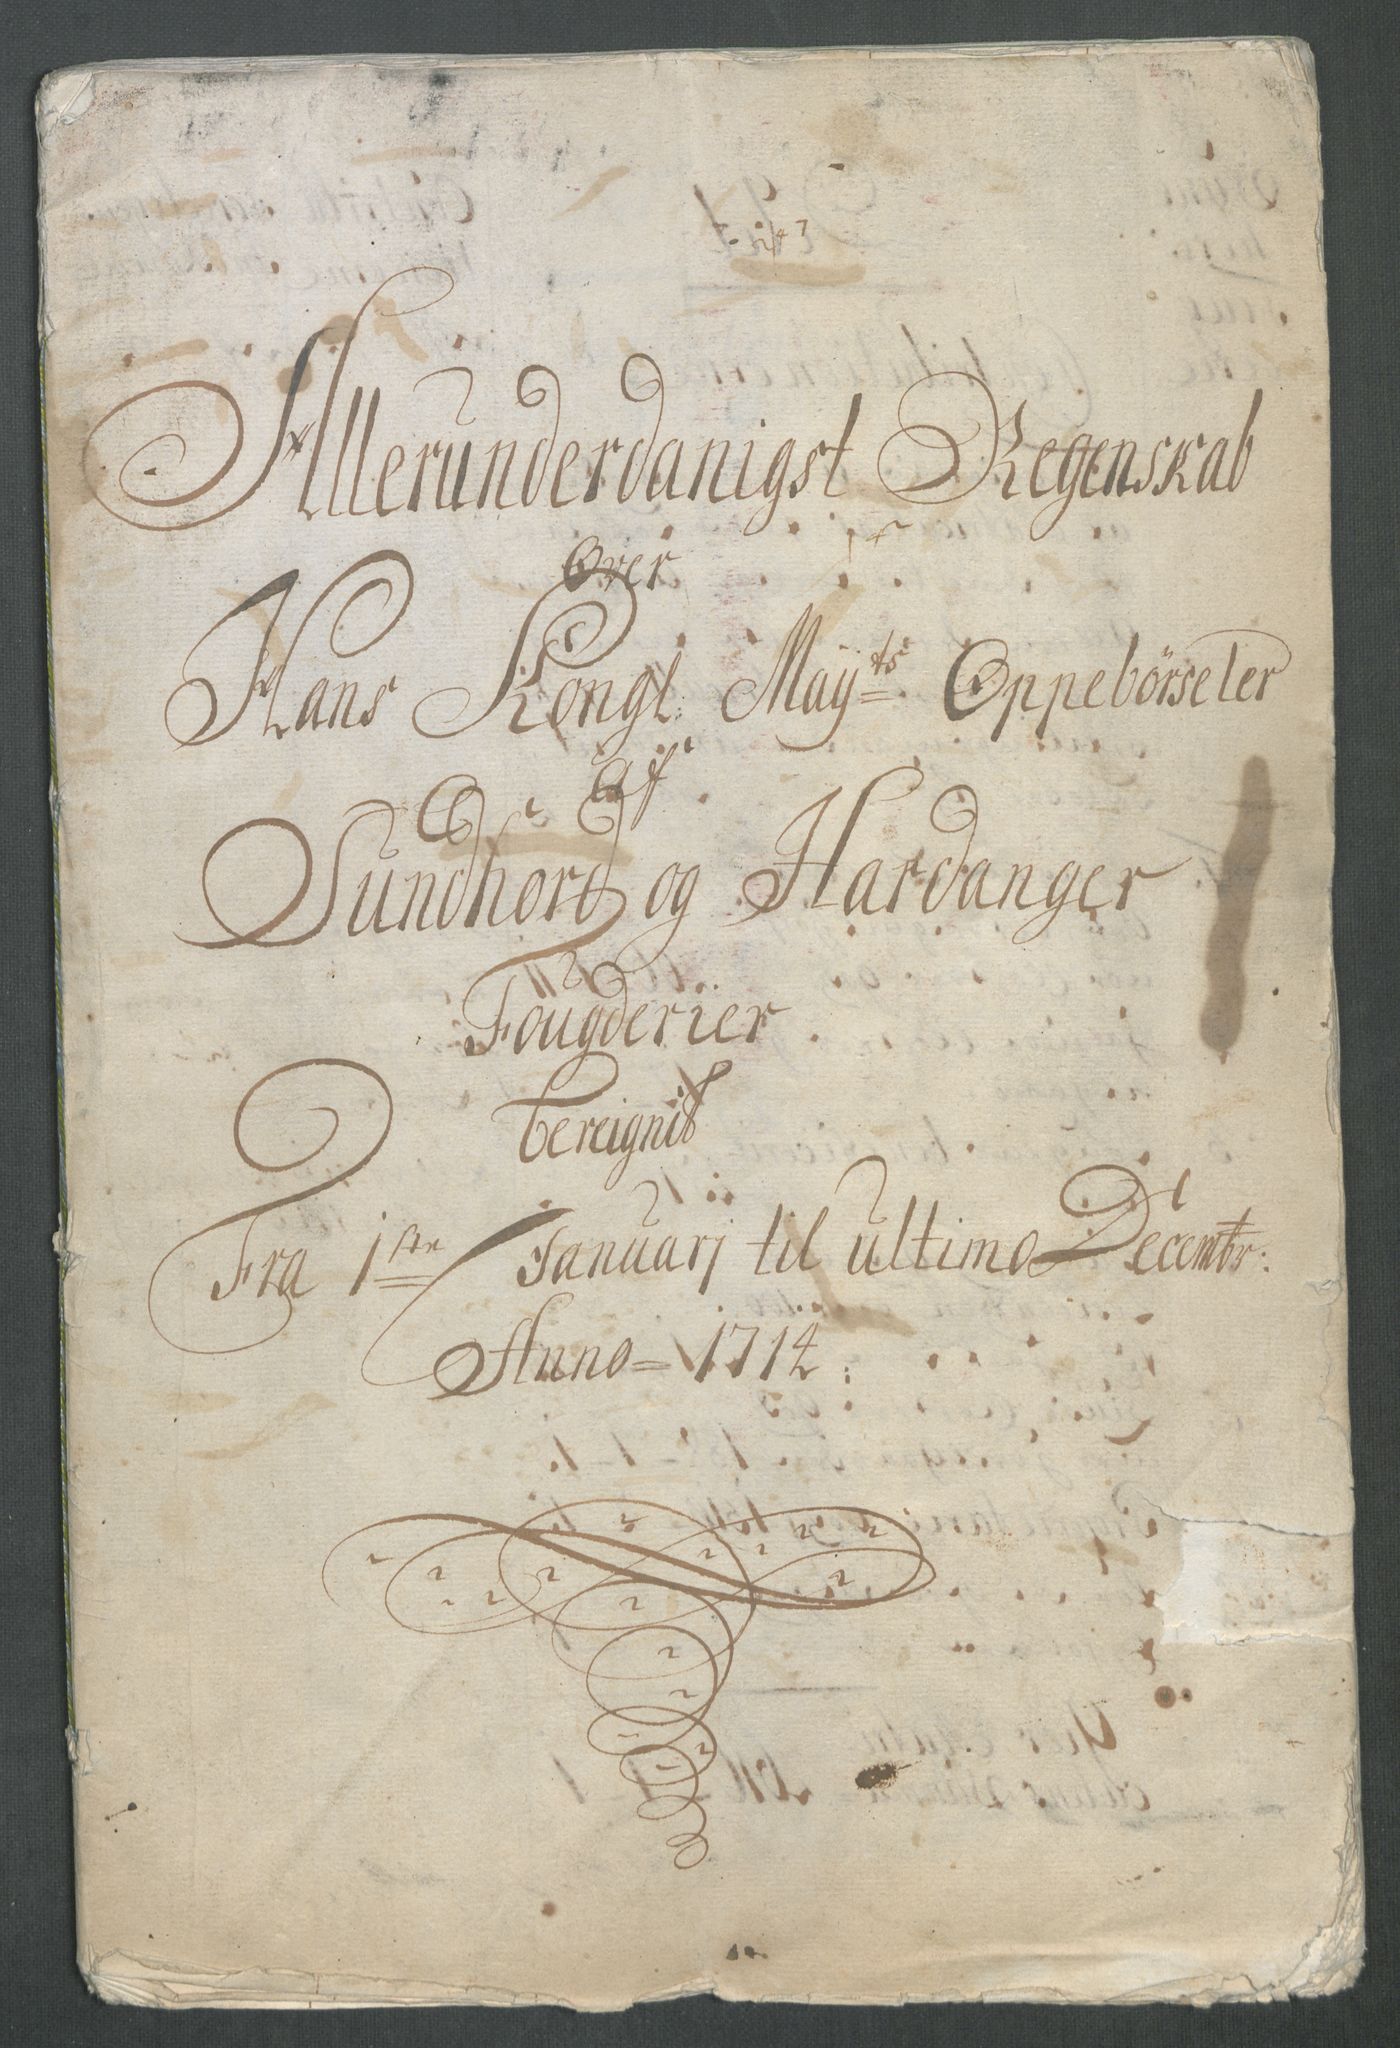 Allerunderdanigst Regenskab
Over
Hans Kongl: Mayts Oppebörseler
Af
Sundhord og Hardanger
Fougderier
Fra 1ste Januarj til ultimo Decembr:
Anno = 1714: